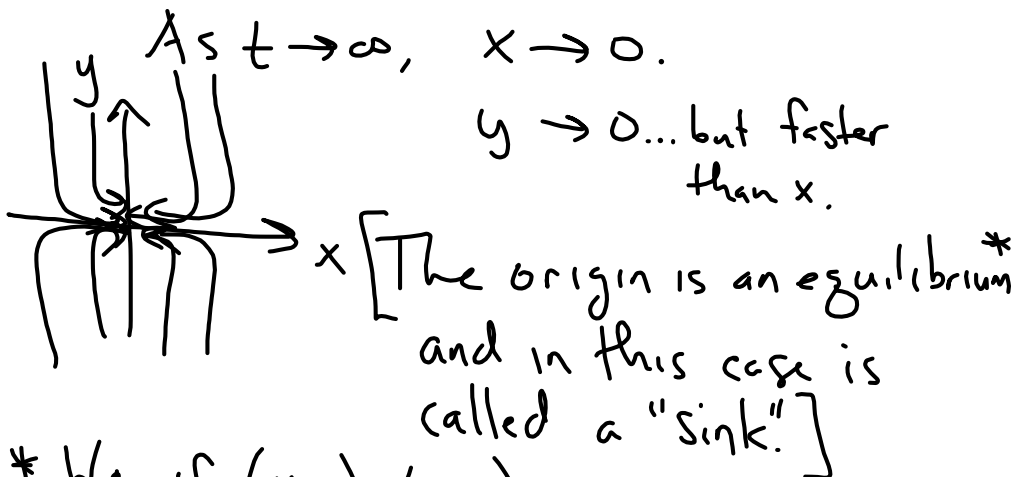 As t → ∞, x → 0.
y
y → 0... but faster
than x.
x
[The origin is an equilibrium*
and in this case is
called a "sink."]